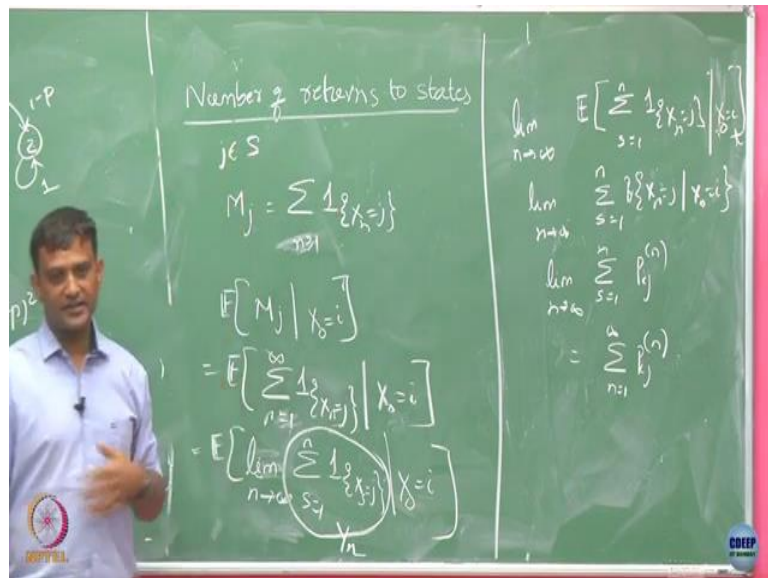 1-P
2
1
P)²
Number of returns to states
j∈S
M_j = Σ_{n≥1} 1_{X_n=j}
E[M_j | X_0=i]
= E[Σ_{n=1}^{∞} 1_{X_n=j} | X_0=i]
= E[lim_{n→∞} Σ_{s=1}^{n} 1_{X_s=j} | X_0=i]
Y_n
lim_{n→∞} E[Σ_{s=1}^{n} 1_{X_n=j} | X_0=i]
lim_{n→∞} Σ_{s=1}^{n} P{X_n=j | X_0=i}
lim_{n→∞} Σ_{s=1}^{n} P_{ij}^{(n)}
= Σ_{n=1}^{∞} P_{ij}^{(n)}
NPTEL
CDEEP
IIT BOMBAY